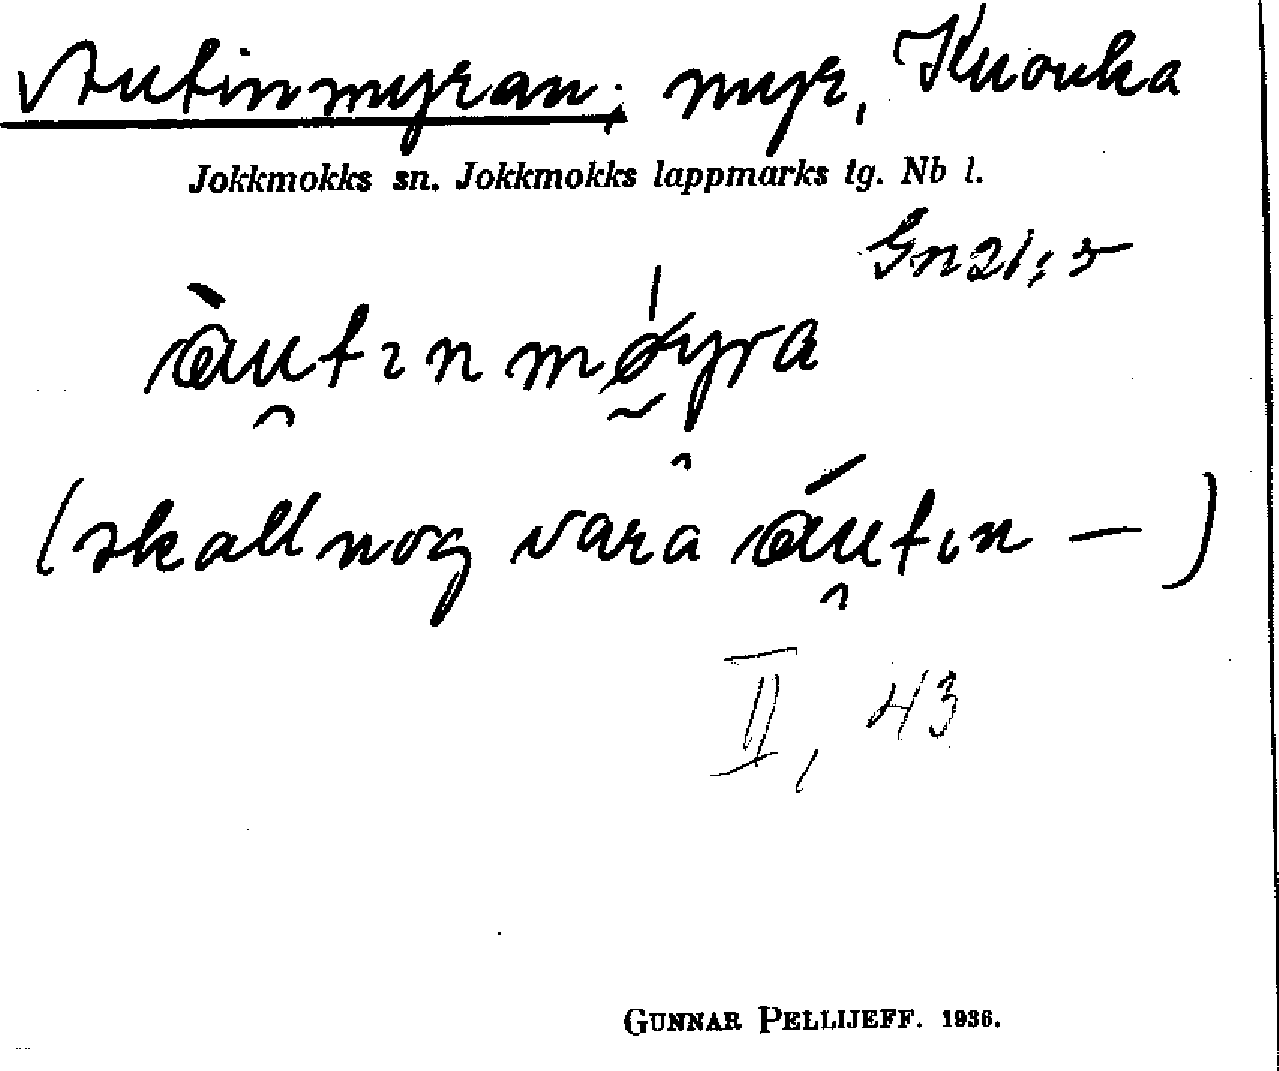 Autinmyran; myr, Knouka
Jokkmokks sn. Jokkmokks lappmarks tg. Nb l.
Gn 21; 5
àu̯tın møy̯ra
(skall nog vara áu̯tın — )
II, 43
GUNNAR PELLIJEFF. 1936.